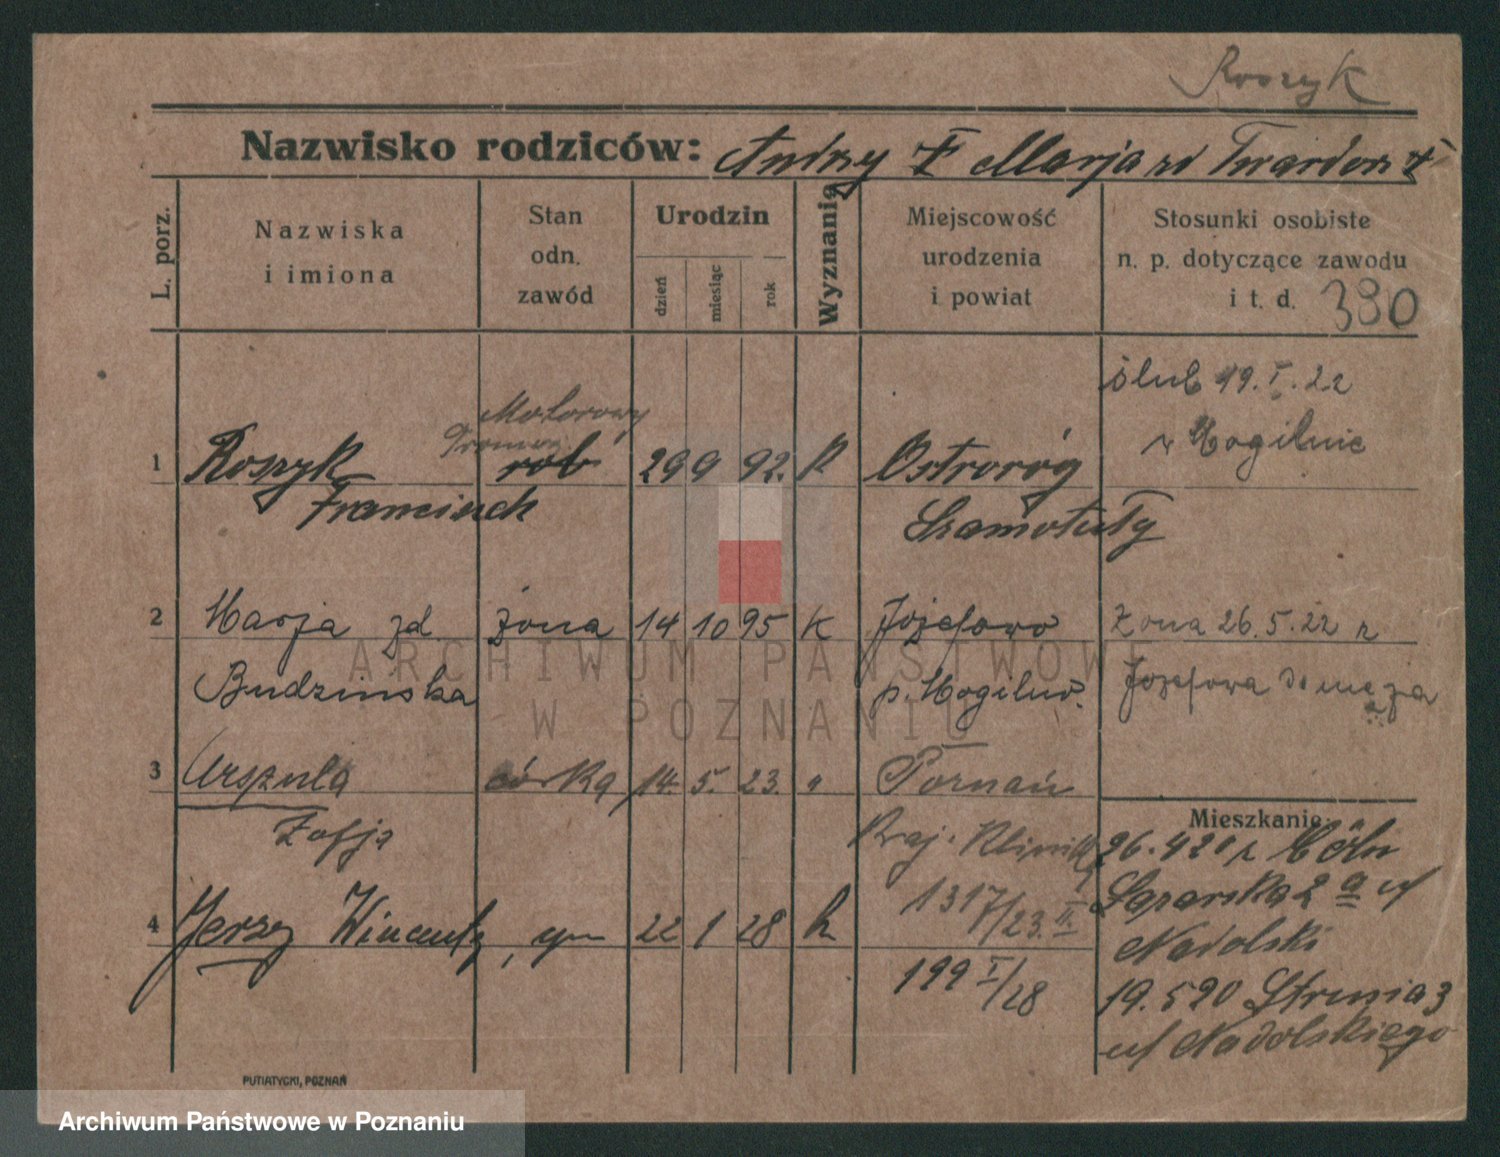 Roszyk
Nazwisko rodziców: Andrzej Marja zd Twardowska
L. porz.
Nazwiska
i imiona
Stan
odn.
zawód
Urodzin
dzień
miesiąc
rok
Wyznanie
Miejscowość
urodzenia
i powiat
Stosunki osobiste
n. p. dotyczące zawodu
i t. d. 390
ślub 19. I. 22
w Mogilnie
Motorowy
1 Roszyk rob 29 9 92. K Ostroróg
Franciszek Szamotuły
2 Marja zd. żona 14 10 95 K Józefowo Żona 26.5.22 z
Budzinska p. Mogilno. Józefowa do męża
3 Urszula córka 14. 5. 23. " Poznań
Zofja
Mieszkanie:
Kraj. Klinika
26.4 21 r
Łazarska 2a u/
1317/23. II.
4 Jerzy Wincenty, syn 22 1 28 k
Nadolski
199 I/28
19.5 20 Strusia 3
u/ Nadolskiego
PUTIATYCKI, POZNAŃ
ARCHIWUM PAŃSTWOWE
W POZNANIU
Archiwum Państwowe w Poznaniu